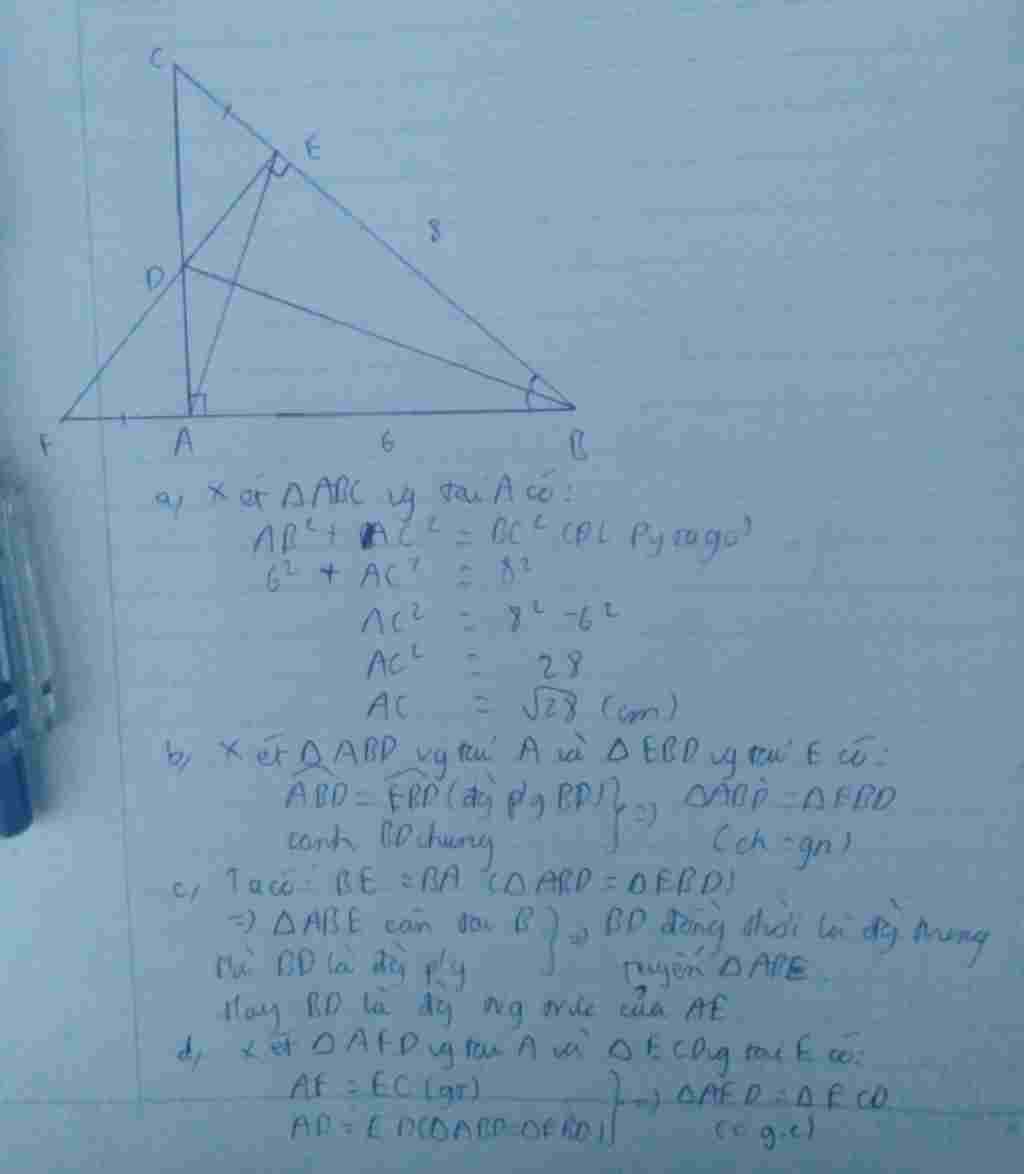 C
E
8
D
F
A
6
B
a, Xét ΔABC vg tại A có:
AB² + AC² = BC² (ĐL Pytago)
6² + AC² = 8²
AC² = 8² - 6²
AC² = 28
AC = √28 (cm)
b, Xét ΔABD vg tại A và ΔEBD vg tại E có:
ABD = EBD (đg p/g BD) } => ΔABD = ΔEBD
cạnh BD chung (ch-gn)
c, Ta có: BE = BA (ΔABD = ΔEBD)
=> ΔABE cân tại B } => BD đồng thời là đg trung
Mà BD là đg p/g tuyến ΔABE
Hay BD là đg trực của AE
d, Xét ΔAFD vg tại A và ΔECD vg tại E có:
AF = EC (gt) } => ΔAFD = ΔECD
AD = ED (ΔABD = ΔEBD) (c.g.c)